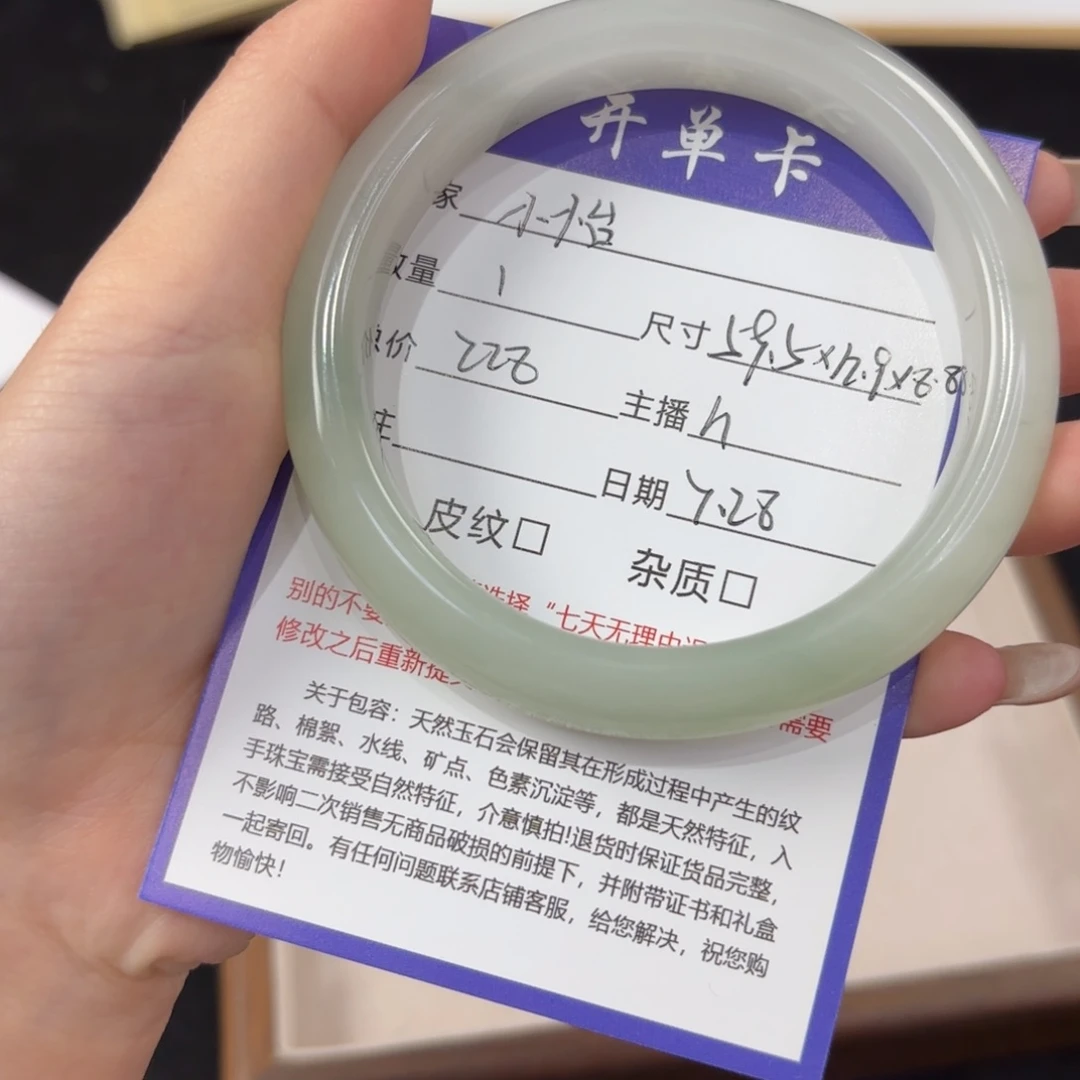 开单卡
家 小怡
数量 1 尺寸 59.5×12.9×8.8
价 228 主播 h
日期 7.28
皮纹□ 杂质□
别的不要 选择“七天无理由退
修改之后重新提交 需要
关于包容：天然玉石会保留其在形成过程中产生的纹
路、棉絮、水线、矿点、色素沉淀等，都是天然特征，入
手珠宝需接受自然特征，介意慎拍!退货时保证货品完整，
不影响二次销售无商品破损的前提下，并附带证书和礼盒
一起寄回。有任何问题联系店铺客服，给您解决，祝您购
物愉快！